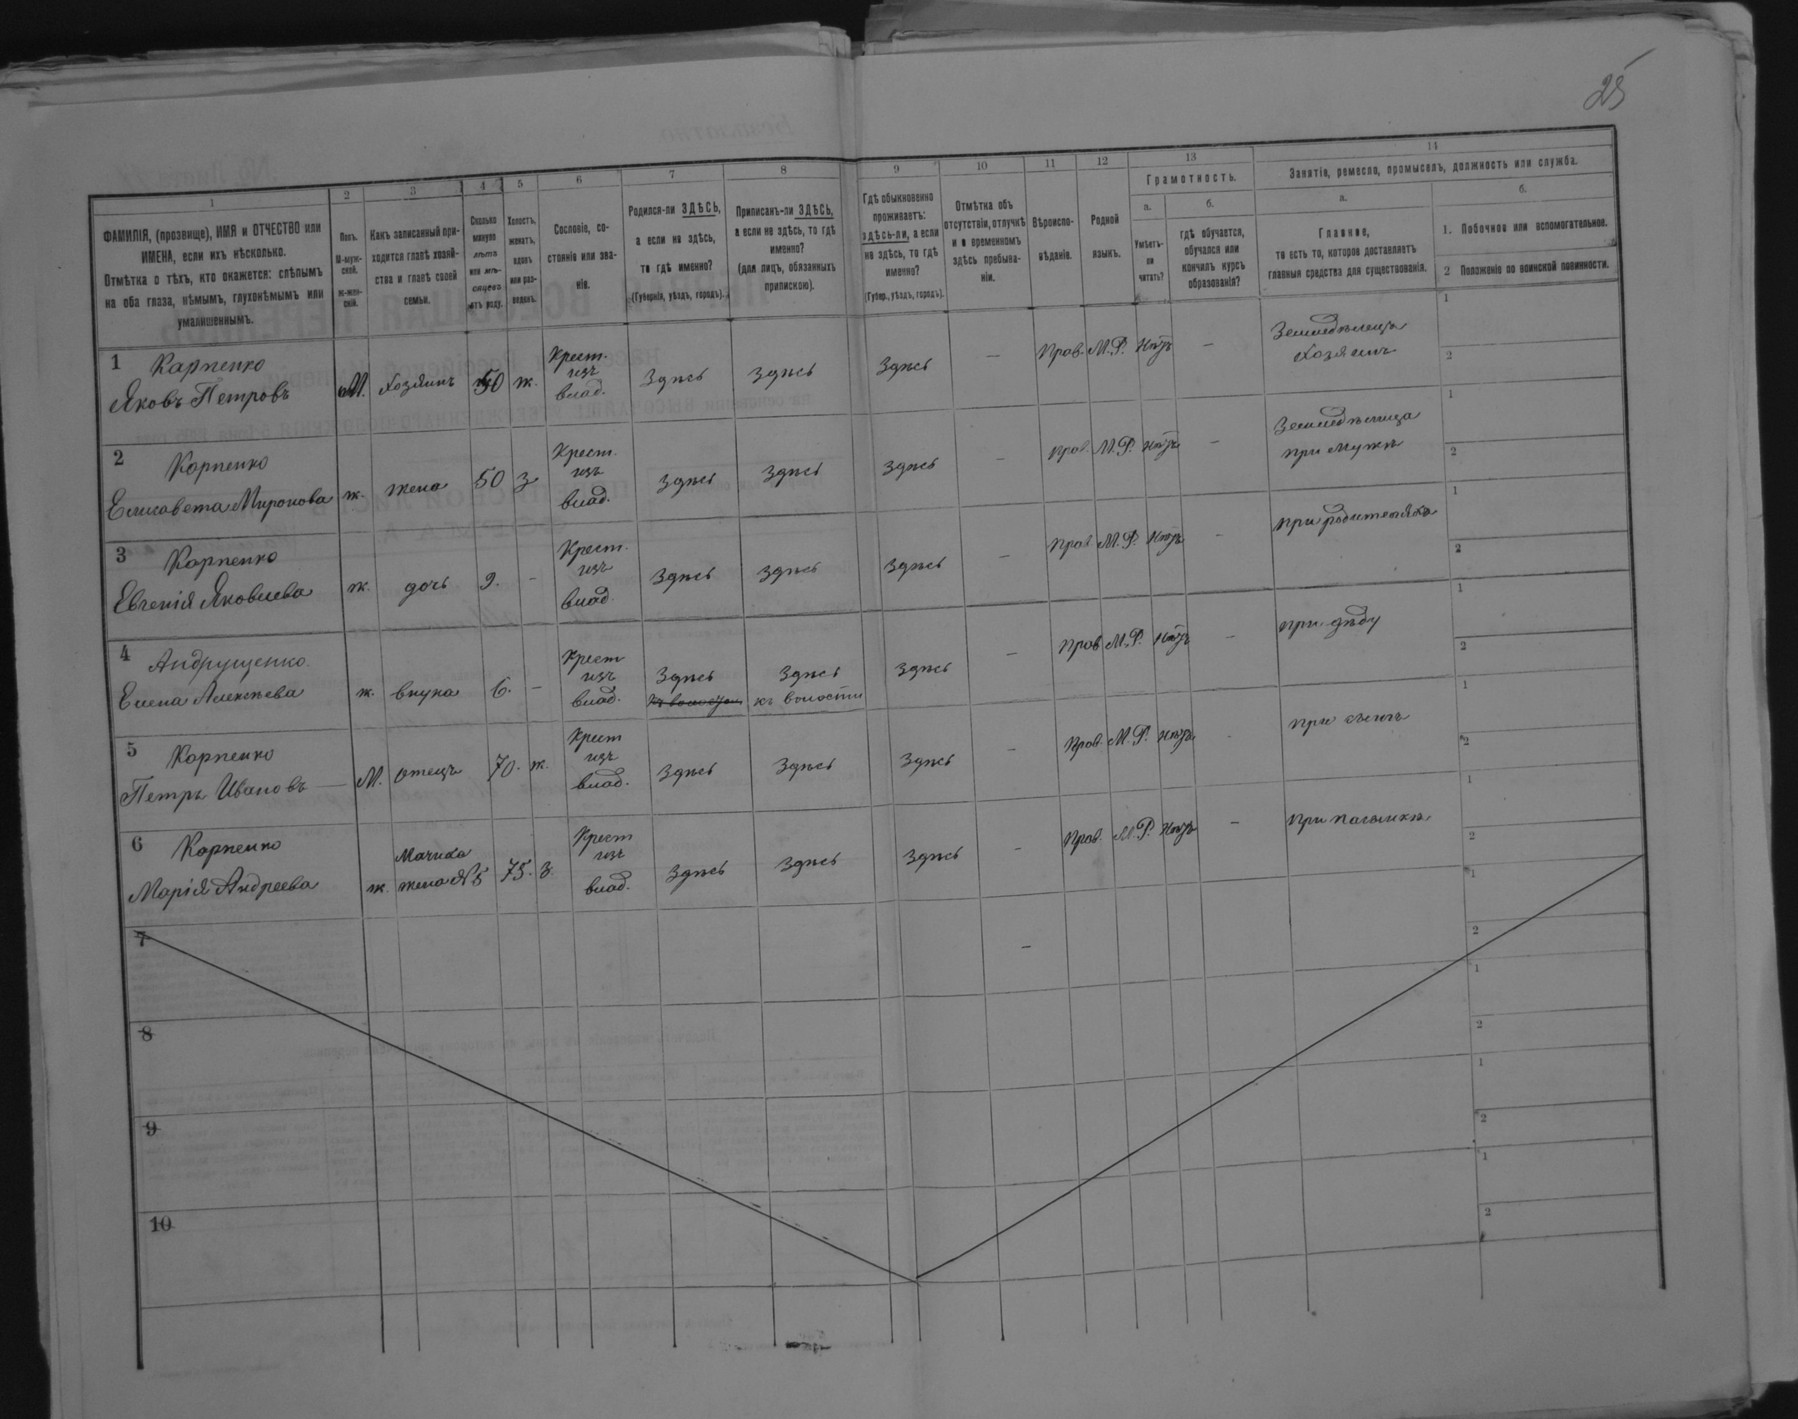 25
1
2
3
4
5
6
7
8
9
10
11
12
13
14
ФАМИЛІЯ, (прозвище), ИМЯ и ОТЧЕСТВО или
ИМЕНА, если ихъ нѣсколько.
Отмѣтка о тѣхъ, кто окажется: слѣпымъ
на оба глаза, нѣмымъ, глухонѣмымъ или
умалишеннымъ.
Полъ.
М-муж-
ской.
ж-жен-
скій.
Какъ записанный при-
ходится главѣ хозяй-
ства и главѣ своей
семьи.
Сколько
минуло
лѣтъ
или мѣ-
сяцевъ
отъ роду.
Холостъ,
женатъ,
вдовъ
или раз-
веденъ.
Сословіе, со-
стояніе или зва-
ніе.
Родился-ли ЗДѢСЬ,
а если не здѣсь,
то гдѣ именно?
(Губернія, уѣздъ, городъ).
Приписанъ-ли ЗДѢСЬ,
а если не здѣсь, то гдѣ
именно?
(для лицъ, обязанныхъ
припискою).
Гдѣ обыкновенно
проживаетъ:
здѣсь-ли, а если
не здѣсь, то гдѣ
именно?
(Губер., уѣздъ, городъ).
Отмѣтка объ
отсутствіи, отлучкѣ
и о временномъ
здѣсь пребыва-
ніи.
Вѣроиспо-
вѣданіе.
Родной
языкъ.
Грамотность.
а.
Умѣетъ-
ли
читать?
б.
гдѣ обучается,
обучался или
кончилъ курсъ
образованія?
Занятіе, ремесло, промыселъ, должность или служба.
а.
Главное,
то есть то, которое доставляетъ
главныя средства для существованія.
б.
1. Побочное или вспомогательное.
2 Положеніе по воинской повинности.
1 Карпенко
Яковъ Петровъ
М. Хозяинъ 50 ж.
Крест.
изъ
влад.
Здѣсь Здѣсь Здѣсь — Прав. М.Р. нѣтъ —
Земледѣлецъ
Хозяинъ
1
2
2 Карпенко
Елисавета Миронова
ж. жена 50 з
Крест.
изъ
влад.
Здѣсь Здѣсь Здѣсь — Прав. М.Р. нѣтъ —
Земледѣлица
при мужѣ
1
2
3 Карпенко
Евгенія Яковлева
ж. дочь 9. —
Крест.
изъ
влад.
Здѣсь Здѣсь Здѣсь — Прав М.Р. нѣтъ —
при родителяхъ
1
2
4 Андрущенко
Елена Алексѣева
ж. внука 6. —
Крест
изъ
влад.
Здѣсь
Здѣсь
къ волости
Здѣсь — Прав М.Р. нѣтъ —
при дѣду
1
2
5 Карпенко
Петръ Ивановъ
М. отецъ 70. ж.
Крест
изъ
влад.
Здѣсь Здѣсь Здѣсь — Прав. М.Р. нѣтъ
при сынѣ
1
2
6 Карпенко
Марія Андреева
ж.
Мачиха
жена №5
75. з.
Крест
изъ
влад.
Здѣсь Здѣсь Здѣсь — Прав. М.Р. нѣтъ —
при пасынкѣ
1
2
7
—
1
2
8
1
2
9
1
2
10
1
2